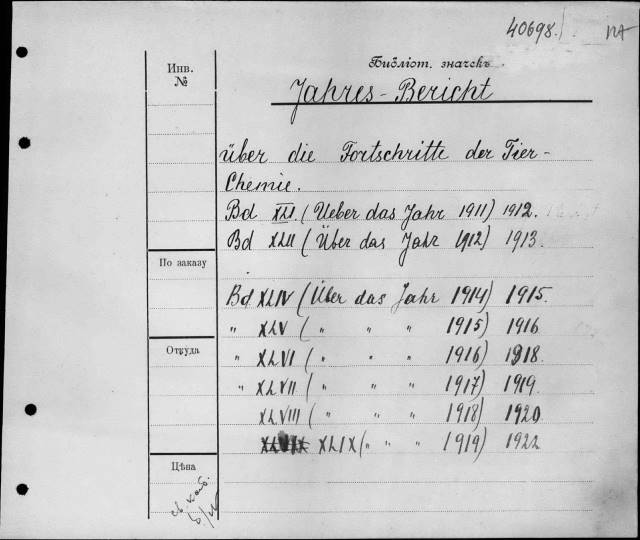 40698.
Библіот. значекъ.
Инв.
№
Jahres-Bericht
über die Fortschritte der Tier-
Chemie.
Bd XLI. (Ueber das Jahr 1911) 1912.
Bd XLII (Über das Jahr 1912) 1913.
По заказу
Bd XLIV (Über das Jahr 1914) 1915.
" XLV (" " " 1915) 1916
Откуда
" XLVI (" " " 1916) 1918.
" XLVII (" " " 1917) 1919.
XLVIII (" " " 1918) 1920
XLIX (" " " 1919) 1922
Цѣна